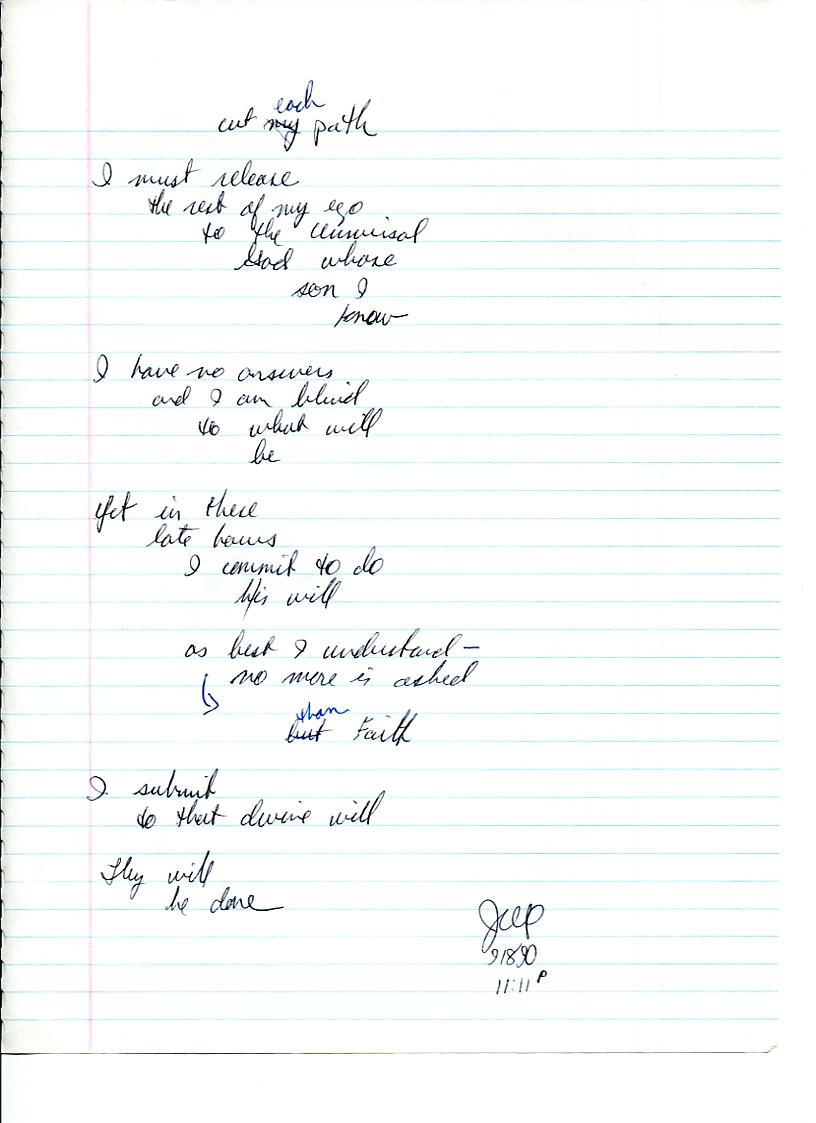 each
cut my path
I must release
the rest of my ego
to the universal
God whose
son I
know
I have no answers
and I am blind
to what will
be
Yet in these
late hours
I commit to do
His will
as best I understand –
no more is asked
than
but Faith
I submit
to that divine will
Thy will
be done
91890
11:11 P